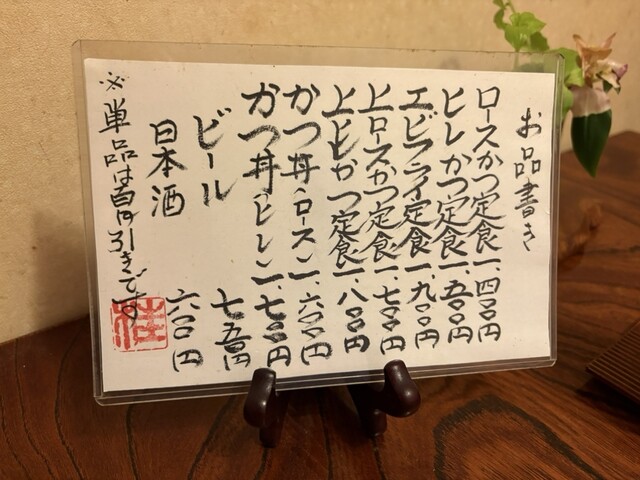 お品書き
ロースかつ定食一、四〇〇円
ヒレかつ定食一、五〇〇円
エビフライ定食一、九〇〇円
上ロースかつ定食一、七〇〇円
上ヒレかつ定食一、八〇〇円
かつ丼(ロース)一、六〇〇円
かつ丼(ヒレ)一、七〇〇円
ビール 七五〇円
日本酒 六〇〇円
※単品は百円引きです
桂